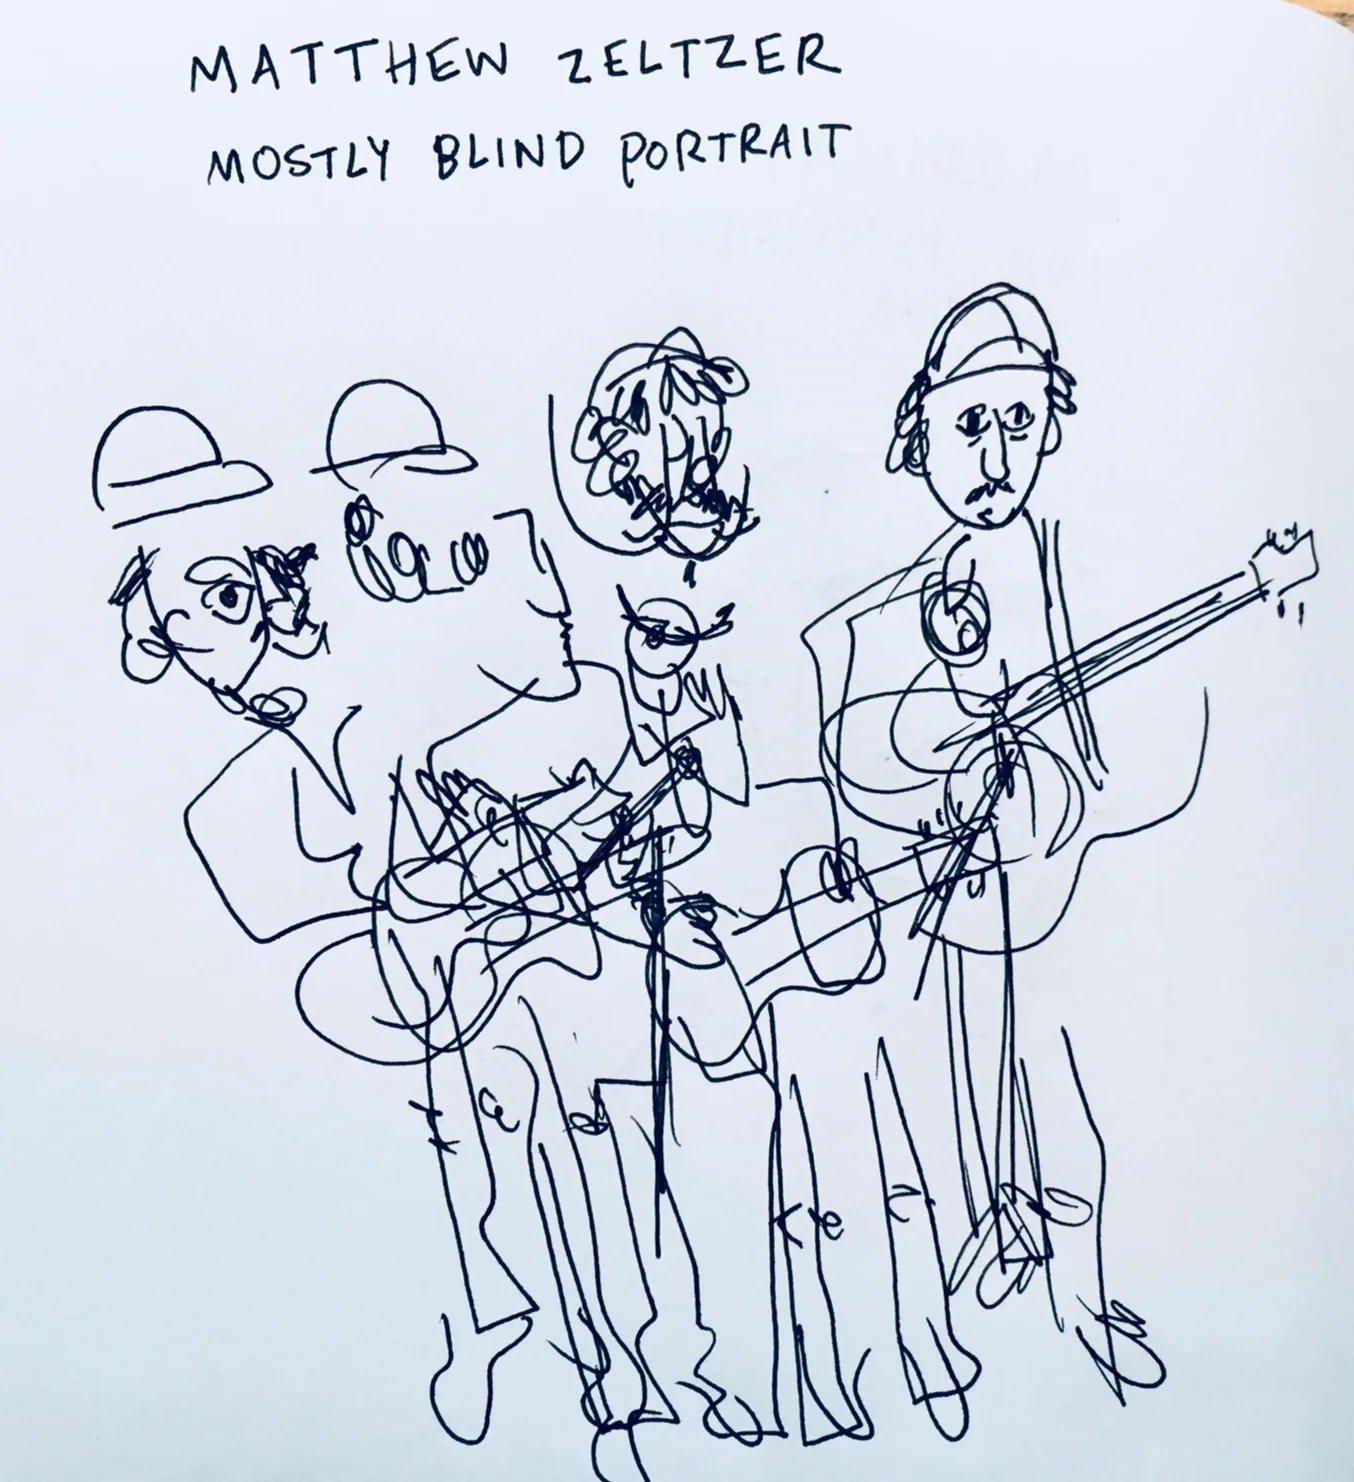 MATTHEW ZELTZER
MOSTLY BLIND PORTRAIT